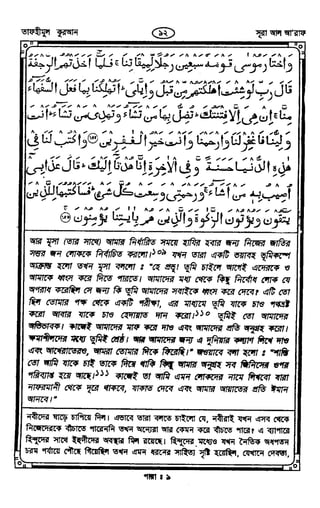 তাফহীমুল কুরআন ৯২ সূরা আল আ'রাফ
وَاخْتَارَ مُوسٰى قَوْمَهٗ سَبْعِيْنَ رَجُلًا لِّمِيْقَاتِنَا ۚ فَلَمَّآ اَخَذَتْهُمُ الرَّجْفَةُ
قَالَ رَبِّ لَوْ شِئْتَ اَهْلَكْتَهُمْ مِّنْ قَبْلُ وَاِيَّايَ ۗ اَتُهْلِكُنَا بِمَا فَعَلَ السُّفَهَآءُ
مِنَّا ۚ اِنْ هِيَ اِلَّا فِتْنَتُكَ ۗ تُضِلُّ بِهَا مَنْ تَشَآءُ وَتَهْدِيْ مَنْ تَشَآءُ ۗ اَنْتَ
وَلِيُّنَا فَاغْفِرْ لَنَا وَارْحَمْنَا وَاَنْتَ خَيْرُ الْغٰفِرِيْنَ ﴿١٥٥﴾ وَاكْتُبْ لَنَا فِيْ
هٰذِهِ الدُّنْيَا حَسَنَةً وَّفِي الْاٰخِرَةِ اِنَّا هُدْنَآ اِلَيْكَ ۗ قَالَ عَذَابِيْٓ
اُصِيْبُ بِهٖ مَنْ اَشَآءُ ۚ وَرَحْمَتِيْ وَسِعَتْ كُلَّ شَيْءٍ ۗ فَسَاَكْتُبُهَا لِلَّذِيْنَ
يَتَّقُوْنَ وَيُؤْتُوْنَ الزَّكٰوةَ وَالَّذِيْنَ هُمْ بِاٰيٰتِنَا يُؤْمِنُوْنَ ﴿١٥٦﴾
আর মূসা (তার সাথে) আমার নির্ধারিত সময়ে হাযির হবার জন্য নিজের জাতির
সত্তর জন লোককে নির্বাচিত করলো।১০৯ যখন তারা একটি ভয়াবহ ভূমিকম্পে
আক্রান্ত হলো তখন মূসা বললো : "হে প্রভু! তুমি চাইলে আগেই এদেরকে ও
আমাকে ধ্বংস করে দিতে পারতে। আমাদের মধ্য থেকে কিছু নির্বোধ লোক যে
অপরাধ করেছিল সে জন্য কি তুমি আমাদের সবাইকে ধ্বংস করে দেবে? এটি তো
ছিল তোমার পক্ষ থেকে একটি পরীক্ষা, এর মাধ্যমে তুমি যাকে চাও পথভ্রষ্ট
করো আবার যাকে চাও হেদায়াত দান করো।১১০ তুমিই তো আমাদের
অভিভাবক। কাজেই আমাদের মাফ করে দাও এবং আমাদের প্রতি অনুগ্রহ করো।
ক্ষমাশীলদের মধ্যে তুমিই শ্রেষ্ঠ। আর আমাদের জন্য এ দুনিয়ার কল্যাণ লিখে দাও
এবং আখেরাতেরও, আমরা তোমার দিকে ফিরেছি।" জওয়াবে বলা হলো : "শাস্তি
তো আমি যাকে চাই তাকে দিয়ে থাকি কিন্তু আমার অনুগ্রহ সব জিনিসের ওপর
পরিব্যাপ্ত হয়ে আছে।১১১ কাজেই তা আমি এমন লোকদের নামে লিখবো যারা
নাফরমানী থেকে দূরে থাকবে, যাকাত দেবে এবং আমার আয়াতের প্রতি ঈমান
আনবে।"
নবীদের ঘাড়ে চাপিয়ে দিল। এভাবে তারা বলতে চাইলো যে, নবীরাই যখন এসব থেকে
নিজেদেরকে বাঁচাতে পারেননি তখন অন্যেরা আর কেমন করে বাঁচতে পারে? এ ব্যাপারে
হিন্দুদের সাথে ইহুদীদের অবস্থার মিল রয়েছে। হিন্দুদের মধ্যেও যখন নৈতিক অধপতন
চরম পর্যায়ে পৌঁছে গিয়েছিল তখন এমন ধরনের সাহিত্য সৃষ্টি হয়েছিল, যেখানে দেবতা,
পারা : ৯